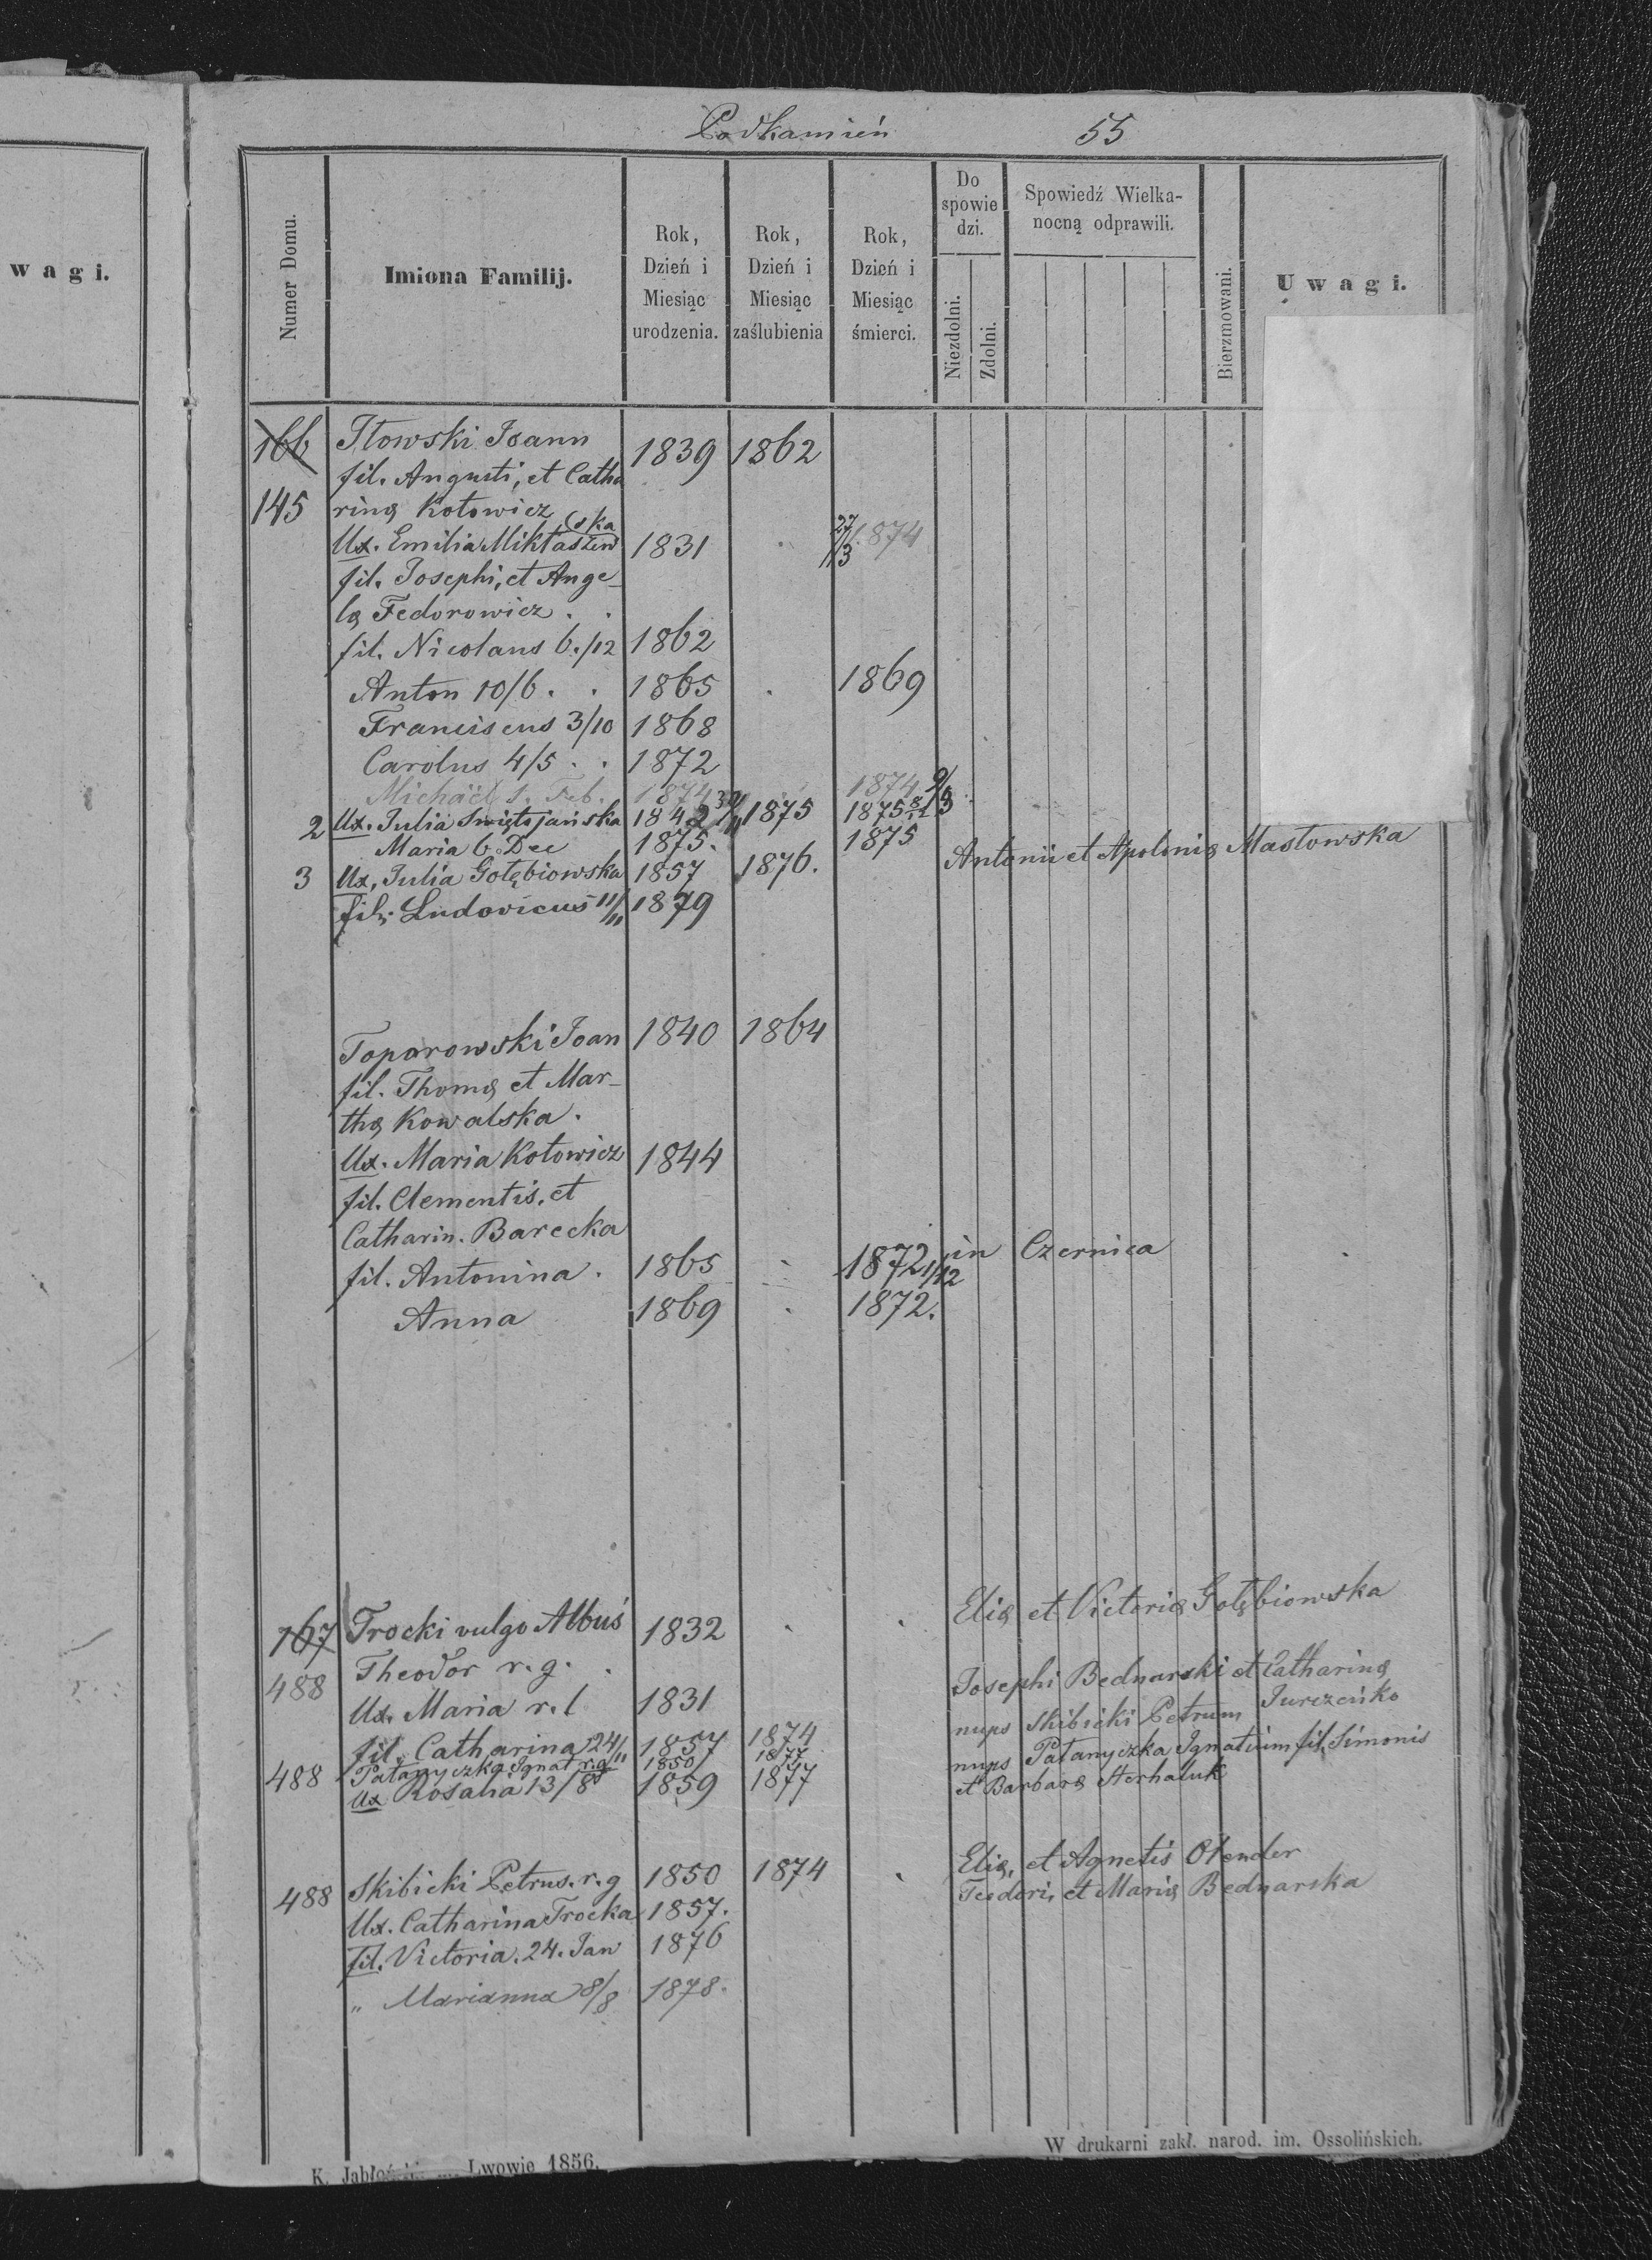 Podkamień 55
w a g i.
Numer Domu.
Imiona Familij.
Rok, Dzień i Miesiąc urodzenia.
Rok, Dzień i Miesiąc zaślubienia
Rok, Dzień i Miesiąc śmierci.
Do spowie dzi.
Niezdolni.
Zdolni.
Spowiedź Wielka-
nocną odprawili.
Bierzmowani.
U w a g i.
166 Iłowski Joann 1839 1862
fil. Augusti, et Catha
145 rinæ Kotowicz
Ux. Emilia Miktaszew(ska 1831 27/3 1874
fil. Josephi, et Ange-
læ Fedorowicz . .
fil. Nicolaus 6./12 1862
Anton 10/6 . . 1865 . 1869
Franciscus 3/10 1868
Carolus 4/5 . . 1872
Michaël 1. Feb. 1874 1874 9/3
2 Ux. Julia Świętojańska 1842 1875 1875
Maria 6 Dec 1875. 1875
3 Ux, Julia Gołębiowska 1857 1876. Antonii et Apoloniæ Masłowska
fil. Ludovicus 11/11 1879
Toporowski Joan 1840 1864
fil. Thomæ et Mar-
thæ Kowalska .
Ux. Maria Kotowicz 1844
fil. Clementis, et
Catharin. Barecka
fil. Antonina . 1865 . 1872 1/12 in Czernica
Anna 1869 . 1872.
167 Trocki vulgo Albuś 1832 . . Eliæ et Victoriæ Gołębiowska
488 Theodor r. g. .
Ux. Maria r. l 1831 Josephi Bednarski et Catharinæ Jurczeńko
fil. Catharina 24/11 1857 1874 nups Skibicki Petrum
488 Patanyczka Ignat r. g 1850 1877 nups Patanyczka Ignatium fil. Simonis
Ux Rosalia 13/8 1859 1877 et Barbaræ Herhaluk
488 Skibicki Petrus. r. g 1850 1874 . Eliæ, et Agnetis Olender
Ux. Catharina Trocka 1857. Teodori, et Mariæ Bednarska
fil. Victoria. 24. Jan 1876
" Marianna 8/8 1878.
W drukarni zakł. narod. im. Ossolińskich.
Lwowie 1856.